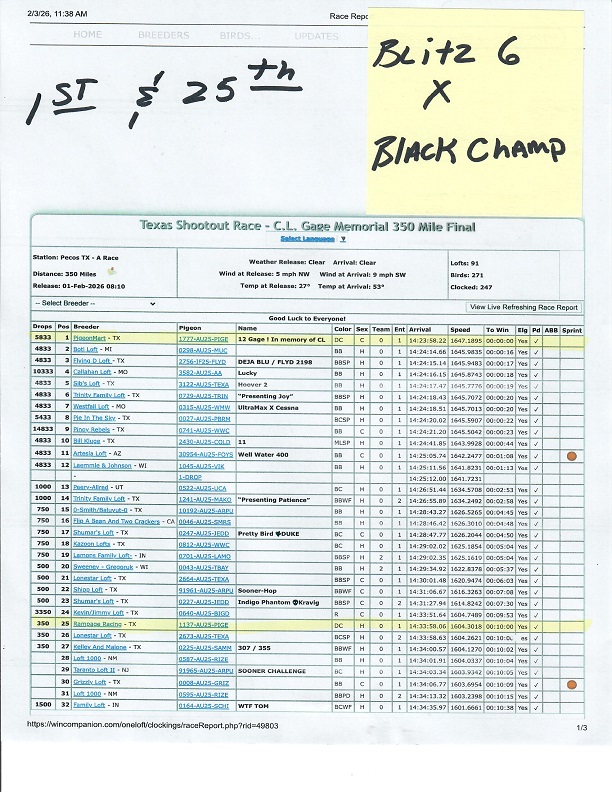 2/3/26, 11:38 AM Race Repo
HOME BREEDERS BIRDS... UPDATES
1ST & 25th
BLitz 6
X
BLACK CHAMP
Texas Shootout Race - C.L. Gage Memorial 350 Mile Final
Select Language ▼
Station: Pecos TX - A Race
Distance: 350 Miles
Release: 01-Feb-2026 08:10
Weather Release: Clear Arrival: Clear
Wind at Release: 5 mph NW Wind at Arrival: 9 mph SW
Temp at Release: 27° Temp at Arrival: 53°
Lofts: 91
Birds: 271
Clocked: 247
-- Select Breeder --
View Live Refreshing Race Report
Good Luck to Everyone!
Drops Pos Breeder Pigeon Name Color Sex Team Ent Arrival Speed To Win Elg Pd ABB Sprint
5833 1 PigeonMart - TX 1777-AU25-PIGE 12 Gage ! In memory of CL DC C 0 1 14:23:58.22 1647.1895 00:00:00 Yes ✓
4833 2 Boti Loft - MI 0298-AU25-MUC BB H 0 1 14:24:14.66 1645.9835 00:00:16 Yes ✓
4833 3 Flying D Loft - TX 2756-JF25-FLYD DEJA BLU / FLYD 2198 BBSP H 0 1 14:24:15.14 1645.9483 00:00:17 Yes ✓
10333 4 Callahan Loft - MO 3582-AU25-AA Lucky BB H 0 1 14:24:16.15 1645.8743 00:00:18 Yes ✓
4833 5 Sib's Loft - TX 3122-AU25-TEXA Hoover 2 BB H 0 1 14:24:17.47 1645.7776 00:00:19 Yes ✓
4833 6 Trinity Family Loft - TX 0729-AU25-TRIN "Presenting Joy" BBSP H 0 1 14:24:18.43 1645.7072 00:00:20 Yes ✓
4833 7 Westfall Loft - MO 0315-AU25-WMW UltraMax X Cessna BB H 0 1 14:24:18.51 1645.7013 00:00:20 Yes ✓
5433 8 Pie In The Sky - TX 0027-AU25-PBRM BCSP H 0 1 14:24:20.02 1645.5907 00:00:22 Yes ✓
14833 9 Piney Rebels - TX 0741-AU25-WWC BB C 0 1 14:24:21.20 1645.5042 00:00:23 Yes ✓
4833 10 Bill Kluge - TX 2430-AU25-COLD 11 MLSP H 0 1 14:24:41.85 1643.9928 00:00:44 Yes ✓
4833 11 Artesia Loft - AZ 30954-AU25-FOYS Well Water 400 BB C 0 1 14:25:05.74 1642.2477 00:01:08 Yes ✓
4833 12 Laemmle & Johnson - WI 1045-AU25-VIK BB H 0 1 14:25:11.56 1641.8231 00:01:13 Yes ✓
- 1-DROP 14:25:12.00 1641.7231
1000 13 Peery-Allred - UT 0522-AU25-UCA BC H 0 1 14:26:51.44 1634.5708 00:02:53 Yes ✓
1000 14 Trinity Family Loft - TX 1241-AU25-MAKO "Presenting Patience" BBWF H 0 2 14:26:55.89 1634.2492 00:02:58 Yes ✓
750 15 D-Smith/Baluvut-D - TX 10192-AU25-ARPU BB H 0 1 14:28:43.27 1626.5265 00:04:45 Yes ✓
750 16 Flip A Bean And Two Crackers - CA 0046-AU25-SMRS BB H 0 1 14:28:46.42 1626.3010 00:04:48 Yes ✓
750 17 Shumar's Loft - TX 0247-AU25-JEDD Pretty Bird DUKE BC C 0 1 14:28:47.77 1626.2044 00:04:50 Yes ✓
750 18 Kazoon Lofts - TX 0812-AU25-WWC BC H 0 1 14:29:02.02 1625.1854 00:05:04 Yes ✓
750 19 Lampro Family Loft- - IN 0701-AU25-LAMO BBSP H 0 1 14:29:02.35 1625.1619 00:05:04 Yes ✓
500 20 Sweeney - Gregoruk - WI 0043-AU25-TBAY BB H 2 1 14:29:34.92 1622.8378 00:05:37 Yes ✓
500 21 Lonestar Loft - TX 2664-AU25-TEXA BBSP C 0 1 14:30:01.48 1620.9474 00:06:03 Yes ✓
500 22 Shipp Loft - TX 91961-AU25-ARPU Sooner-Hop BBWF C 0 1 14:31:06.67 1616.3263 00:07:08 Yes ✓
500 23 Shumar's Loft - TX 0227-AU25-JEDD Indigo Phantom Kravig BBSP C 0 2 14:31:27.94 1614.8242 00:07:30 Yes ✓
3350 24 Kevin/Jimmy Loft - TX 0640-AU25-BIGD R C 0 1 14:33:51.64 1604.7489 00:09:53 Yes ✓
350 25 Rampage Racing - TX 1137-AU25-PIGE DC H 0 1 14:33:58.06 1604.3018 00:10:00 Yes ✓
350 26 Lonestar Loft - TX 2673-AU25-TEXA BCSP H 0 2 14:33:58.63 1604.2621 00:10:0 es ✓
350 27 Kelley And Malone - TX 0225-AU25-SAMM 307 / 355 BBWF H 0 1 14:34:00.57 1604.1270 00:10:02 Yes ✓
28 Loft 1000 - NM 0587-AU25-RIZE BB H 0 1 14:34:01.91 1604.0337 00:10:04 Yes ✓
29 Taranto Loft II - NJ 91965-AU25-ARPU SOONER CHALLENGE BC H 0 1 14:34:03.34 1603.9342 00:10:05 Yes ✓
30 Grizzly Loft - TX 0008-AU25-GRIZ BB C 0 1 14:34:06.77 1603.6954 00:10:09 Yes ✓
31 Loft 1000 - NM 0595-AU25-RIZE BBPD H 0 2 14:34:13.32 1603.2398 00:10:15 Yes ✓
1500 32 Family Loft - IN 0164-AU25-SCHI WTF TOM BCWF H 0 1 14:34:35.97 1601.6661 00:10:38 Yes ✓
https://wincompanion.com/oneloft/clockings/raceReport.php?rid=49803 1/3